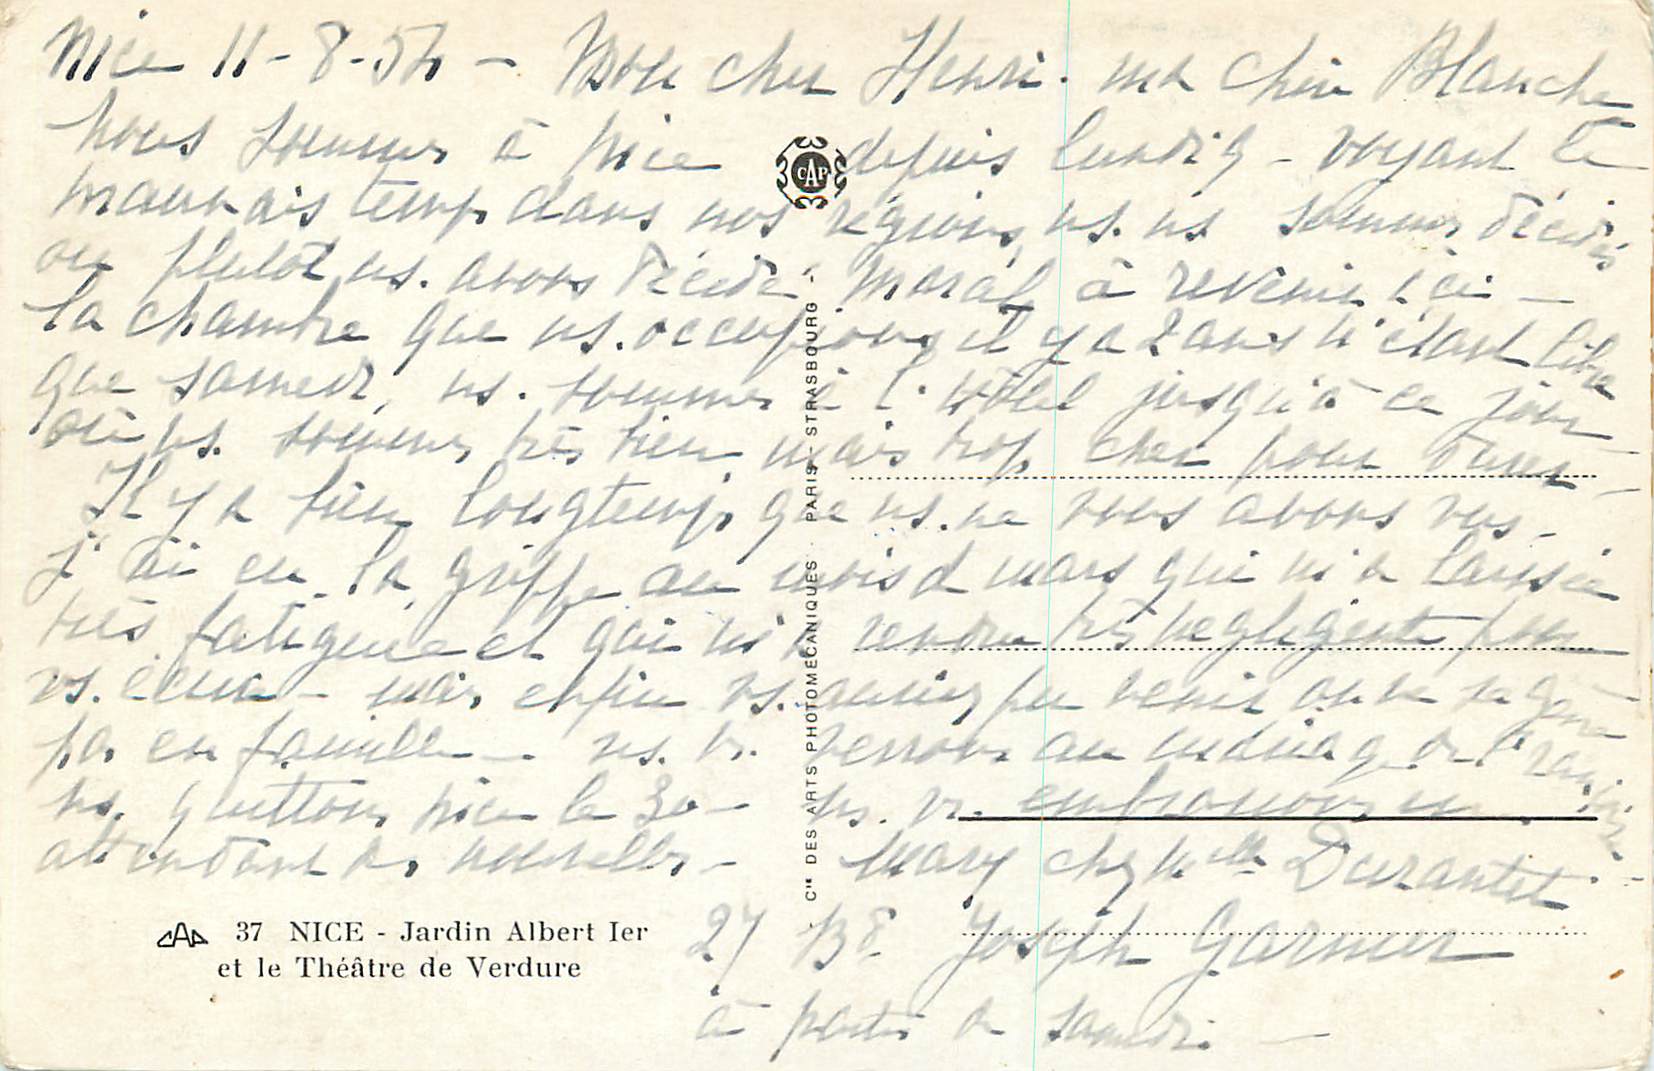 Nice 11-8-54 - Mon cher Henri. ma chère Blanche
Nous sommes à Nice depuis lundi 9 - voyant le
mauvais temps dans nos régions, ns. ns sommes décidés
ou plutôt ns. avons décidé à revenir ici -
la chambre que ns. occupions il y a 2 ans n'étant libre
que samedi, ns. sommes à l'hôtel jusqu'à ce jour
où ns. sommes très bien mais trop cher pour
Il y a bien longtemps que ns. ne vous avons vus -
j'ai eu la grippe au mois d mars qui m'a laissée
très fatiguée et qui m'a rendue très négligente pour
vs. écrire - mais enfin vs. auriez pu venir on ne se gêne
pas en famille - ns. vs. verrons au mariage de
ns. quittons Nice le 30 - ns. vs. embrassons en
attendant des nouvelles -
Mary chez Melle Durantet
27 Bd Joseph Garnier
à partir de samedi -
CAP
Cie DES ARTS PHOTOMÉCANIQUES · PARIS - STRASBOURG -
CAP 37 NICE - Jardin Albert Ier
et le Théâtre de Verdure